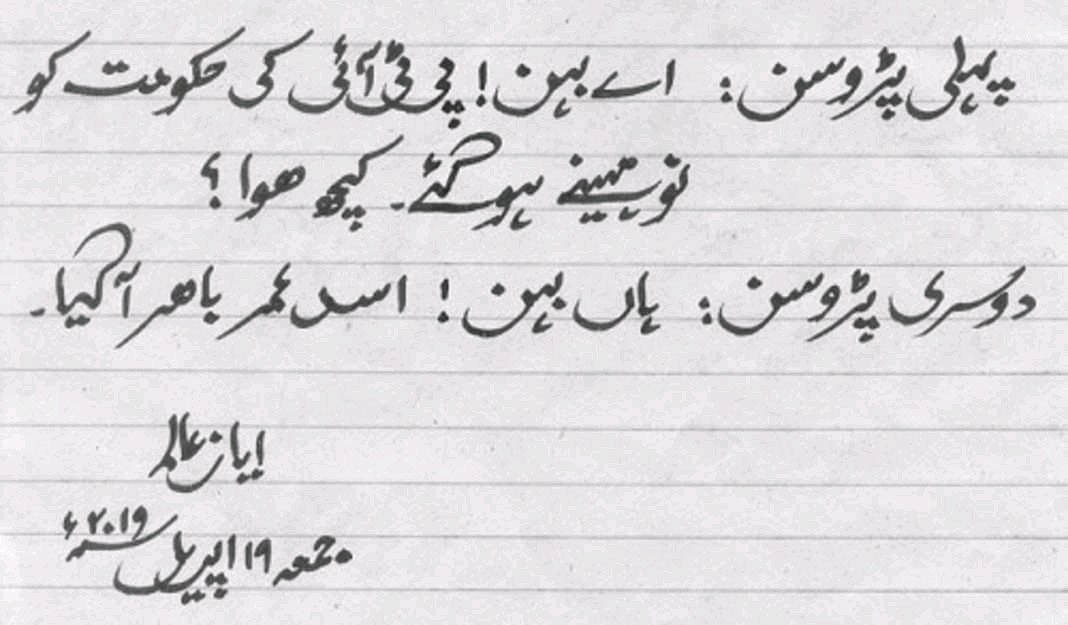 پہلی پڑوسن: اے بہن! پی ٹی آئی کی حکومت کو
نو مہینے ہوگئے۔ کچھ ھوا؟
دوسری پڑوسن: ہاں بہن! اسد عمر باھر آگیا۔
ایان عالم
جمعہ ۱۹ اپریل سنہ ۲۰۱۹ء